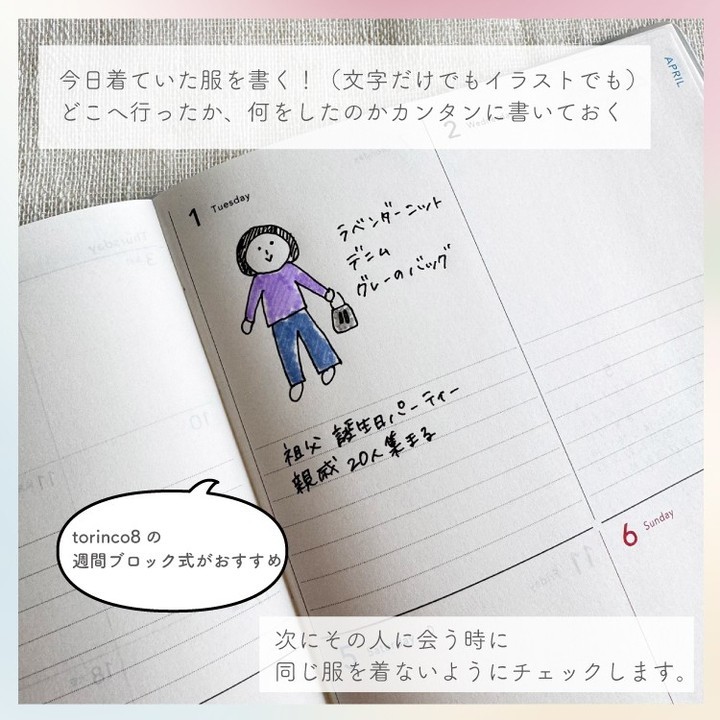 今日着ていた服を書く！（文字だけでもイラストでも）
どこへ行ったか、何をしたのかカンタンに書いておく
APRIL
1 Tuesday
2
ラベンダーニット
デニム
グレーのバッグ
祖父 誕生日パーティー
親戚 20人集まる
6 Sunday
torinco8 の
週間ブロック式がおすすめ
次にその人に会う時に
同じ服を着ないようにチェックします。